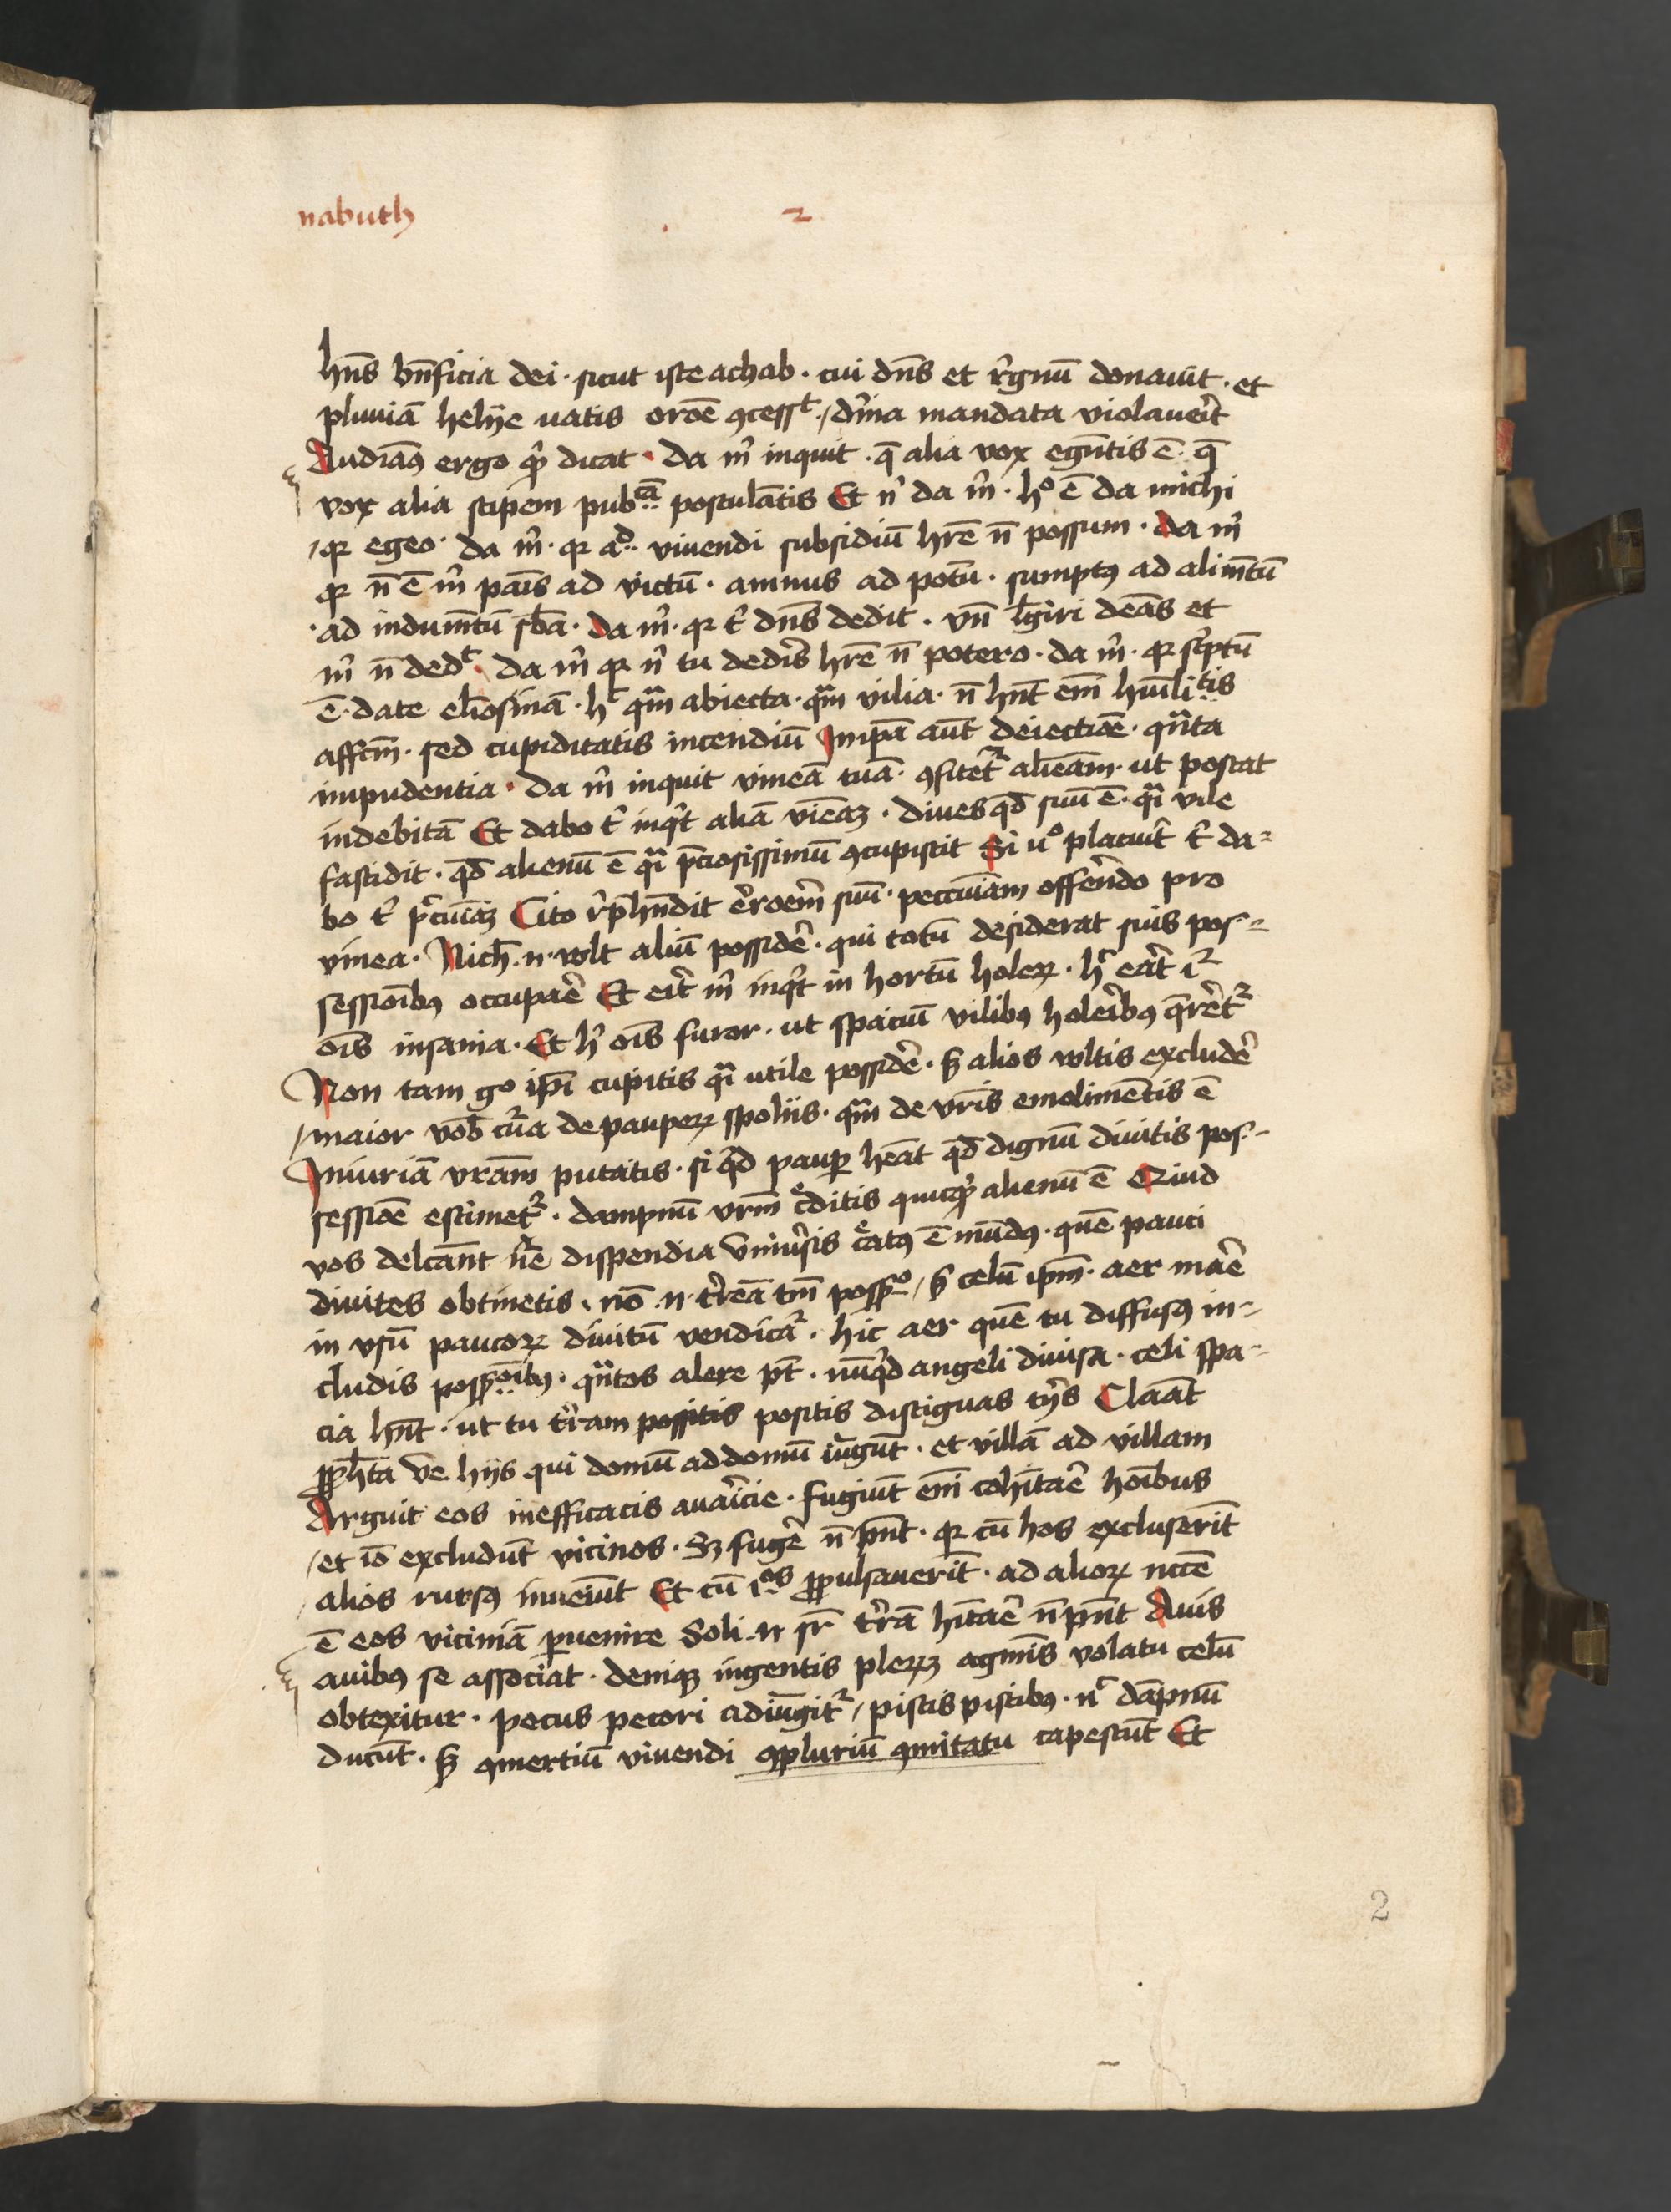 nabuth 2
hn̄s bn̄ficia dei · sicut iste achab · cui dn̄s et r̄gnū donauit · et
pluuiā helye uatis oroē ꝯcessᵗ / dīna mandata violauer̄t
Audiaꝰ ergo qd̓ dicat · da m̓ inquit · q̄ alia vox egn̄tis ē · q̄
vox alia stipem pubᶜᵃ̄ postulātis Et n̓ da m̓ · hº ē da michi
/ qꝛ egeo · da m̓ · qꝛ ad vivendi subsidiū hr̄e n̄ possum · da m̓
qꝛ n̄ ē m̓ pais̄ ad victū · amnus ad potū · sumptꝰ ad alim̄tū
· ad indum̄tū sb̄a · da m̓ · qꝛ t̓ dn̄s dedit · vn̄ lgiri deās et
m̓ n̄ dedᵗ · da m̓ qꝛ n̓ tu dedis̄ hr̄e n̄ potero · da m̓ · qꝛ sc̓ptū
ē · date elīosinā · hᶜ qᵃm abiecta · qᵃm vilia · n̄ hn̄t em̄ hūilitis
affcm̄ · sed cupiditatis incendiū Inip̄a aūt deiectiōe · qᵃnta
inpudentia · da m̓ inquit vineā tuā · ꝯfitetᷣ alieām · ut poscat
indebitā Et dabo t̓ inqͥt aliā vieāꝫ · diues qd̄ suū ē · qᵃi vile
fastidit · qd̄ alienū ē qᵃi p̄ciosissimū ꝯcupiscit Si uº placuit̄ t̓ da-
bo t̓ p̄cuiāꝫ Cito r̓phn̄dit er̄roem̄ suū · peccuiam offer̄do pro
vinea · Nich̄ · n · volt aliū possider̄ · qui totū desiderat suis pos-
sessioībꝰ occupaēr Et eit̄ m̓ inqͥt in hortū holeꝝ · hᶜ ear̄t iᷣ
oīs insania · Et hͥ oīs furor · ut spaciū vilibꝰ holeībꝰ q̄rēt᷑
Non tam go ip̄i cupitis qᵃi utile possider̄ · s̄ alios voltis excluder̄
/ maior vob̄ cur̄a de paupeꝝ spoliis · qᵃm de vr̄is emolimētis ē
Iniuriā vrām putatis · si qͥd paup̄ heāt qd̄ dignū diuitis pos-
sessiōe estimet᷑ · dampnū vrm̄ c̄ditis quicqͥd alienū ē Quid
vos delcānt n̄e dispendia vniuis̄is c̄atꝰ ē mūdꝰ · quē pauci
diuites obtinetis · nō · n · tr̄eā tm̄ possº / s̄ celū ip̄m · aer maēr
in vsū paucoꝝ diuitū vendicat᷑ · hic aer quē tu diffusꝰ in-
cludis possᵒⁿībꝰ · qᵃntos alere pt̄ · nūqͥd angeli diuisa · celi spa-
cia hn̄t · ut tu tr̄ram possitis positis distiguas tijs Claāt
ꝓph̄ta ve hijs qui domū ad domū iūgūt · et villā ad villam
Arguit eos inefficacis auar̄icie · fugiūt em̄ cohītaēr hoībus
/ et iō excludūt vicinos · Sꝫ fuger̄ n̄ pn̄t · qꝛ cū hos excluserīt
/ alios rursꝰ inueiūt Et cū iᵒˢ ꝓpulsauerīt · ad alioꝝ nccē
ē eos viciniā ꝑuenire Soli · n · sr̄ tr̄rā hītaēr n̄ pn̄t Auis
auibꝰ se associat · deniqꝫ ingentis pleꝝꝫ agmīs volatu celū
obtexitur · pecus pecori adiūgit᷑ / piscis piscibꝰ · nᶜ dāpnū
ducūt · s̄ ꝯmertiū viuendi ꝯpluriū ꝯmitatu capescūt Et
2